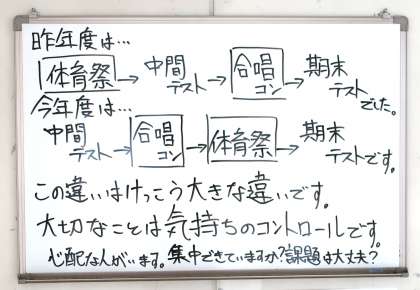 昨年度は…
体育祭→中間テスト→合唱コン→期末テストでした。
今年度は…
中間テスト→合唱コン→体育祭→期末テストです。
この違いはけっこう大きな違いです。
大切なことは気持ちのコントロールです。
心配な人がいます。集中できていますか?課題は大丈夫?